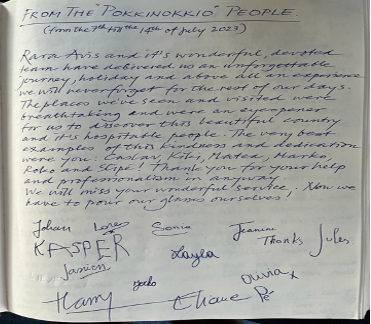 FROM THE "POKKINOKKIO" PEOPLE.
(from the 7th till the 14th of July 2023)
Rara Avis and it's wonderful, devoted
team have delivered us an unforgettable
journey, holiday and above all an experience
we will never forget for the rest of our days.
The places we've seen and visited were
breathtaking and were an eye opener
for us to discover this beautiful country
and it's hospitable people. The very best
examples of this kindness and dedication
were you: Caslav, Kiki, Matea, Marko,
Roko and Stipe! Thank you for your help
and professionalism in anyway.
We will miss your wonderful service, Now we
have to pour our glasses ourselves,
Johan Sonia Jeanine Thanks Jules
KASPER Layla
Janien
Olivia x
Harry Eliane Pé